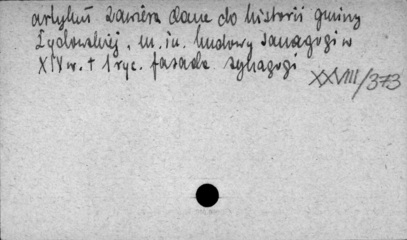 artykuł zawiera dane do historii gminy
Żydowskiej, m. in. budowy synagogi w
XIX w. + 1 ryc. fasada synagogi
XXVIII/373